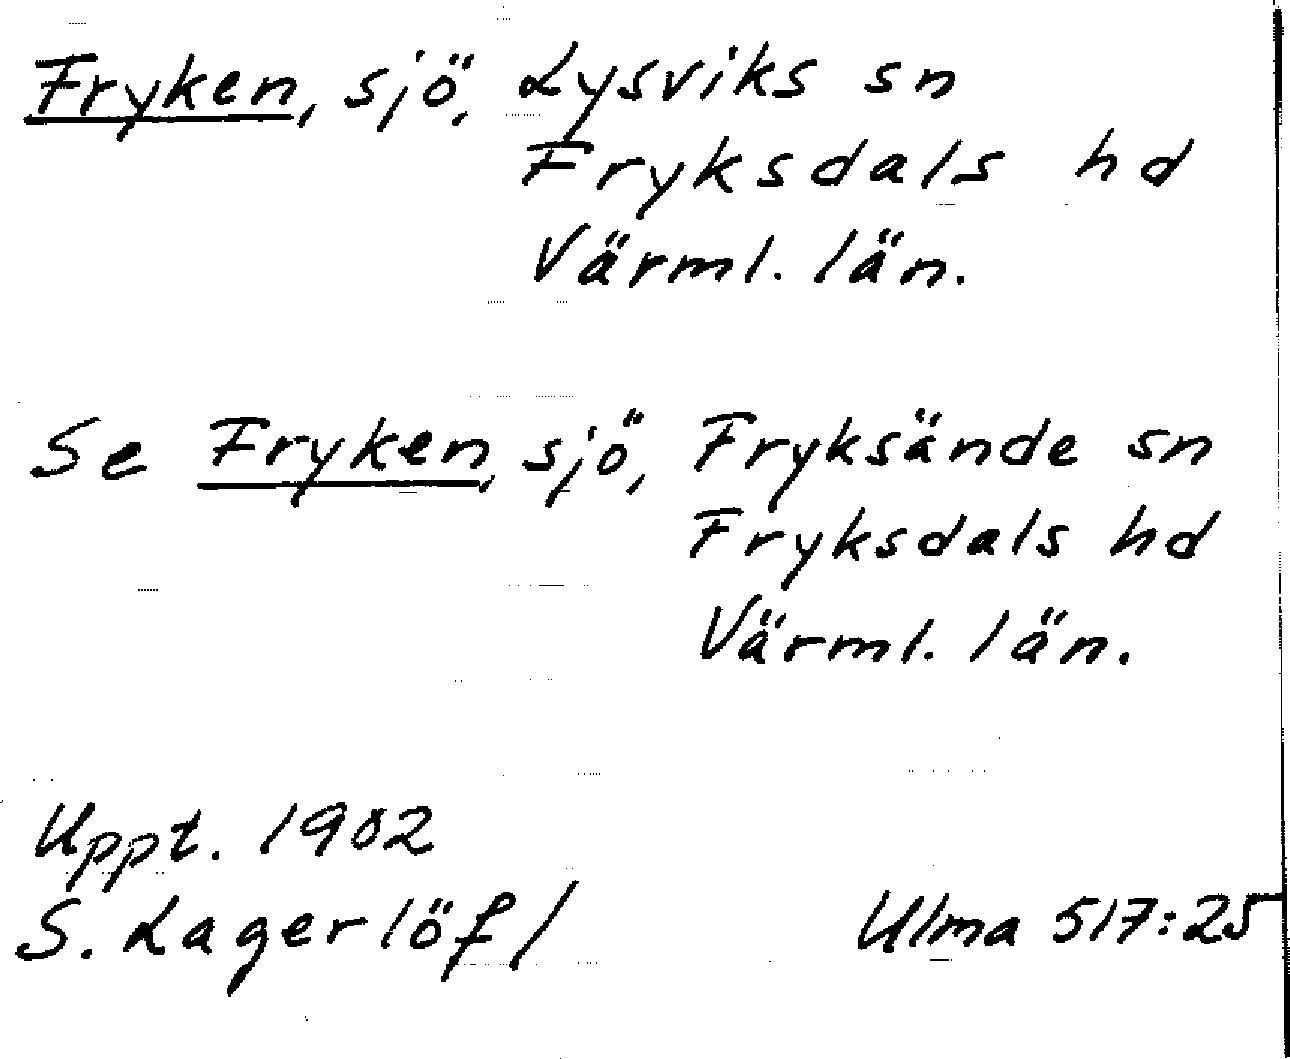 Fryken, sjö, Lysviks sn
Fryksdals hd
Värml. län.
Se Fryken, sjö, Fryksände sn
Fryksdals hd
Värml. län.
Uppt. 1902
S. Lagerlöf/ Ulma 517:25